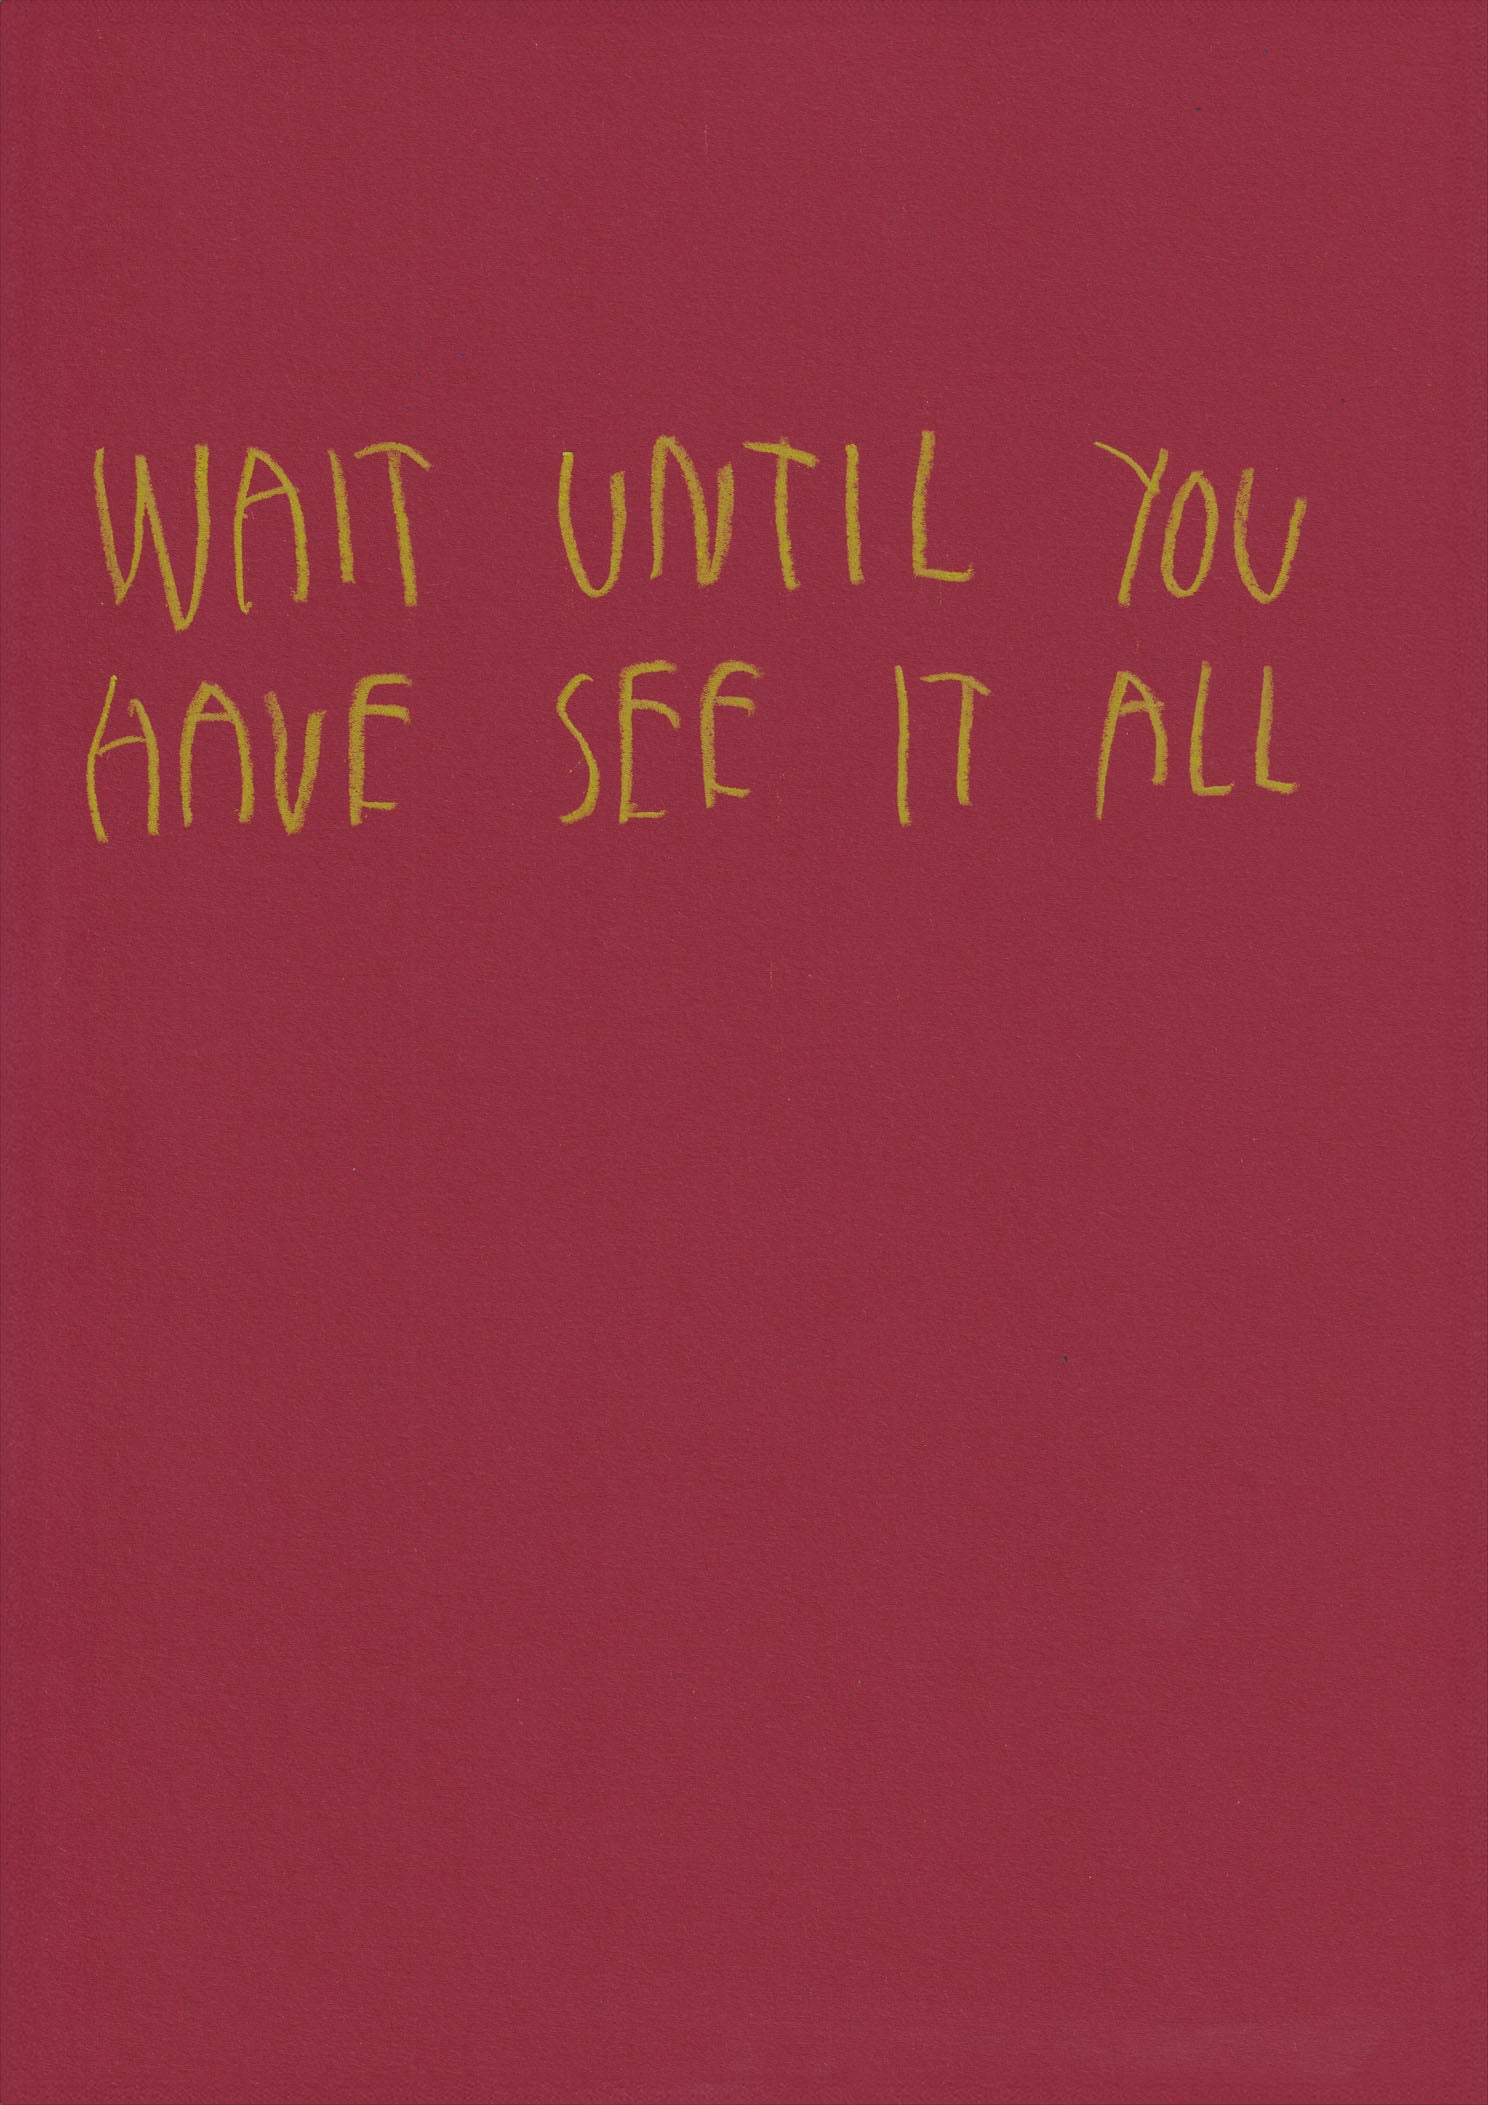 WAIT UNTIL YOU
HAVE SEE IT ALL